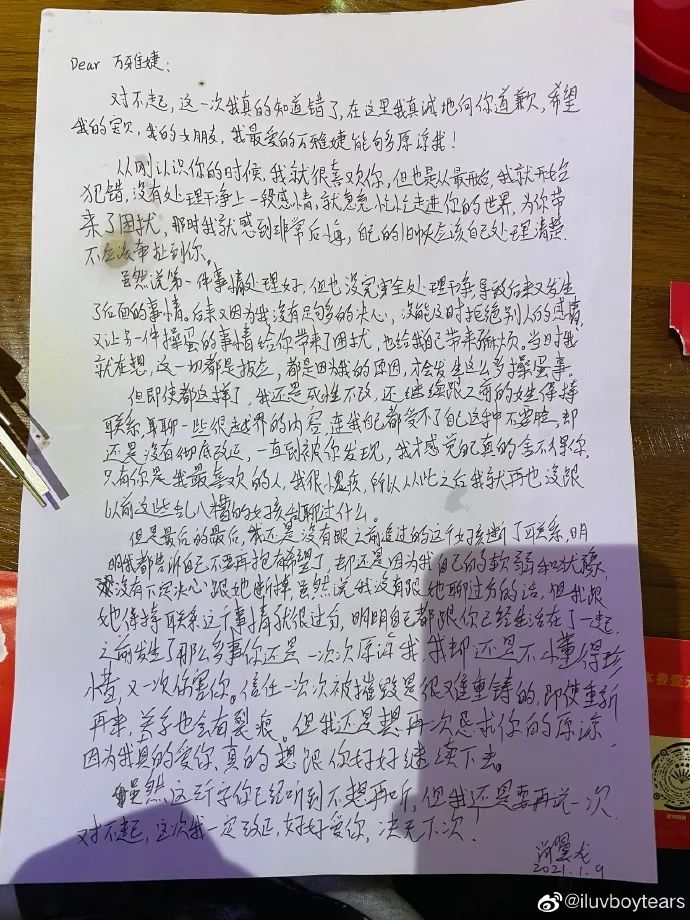 Dear 万雅婕：
对不起，这一次我真的知道错了，在这里我真诚地向你道歉，希望
我的宝贝，我的女朋友，我最爱的万雅婕能够多原谅我！
从刚认识你的时候，我就很喜欢你，但也是从最开始，我就开始
犯错，没有处理干净上一段感情，就急急忙忙走进你的世界，为你带
来了困扰，那时我就感到非常后悔，自己的旧账应该自己处理清楚
不应该牵扯到你。
虽然说第一件事情处理好，但也没完全处理干净，导致后来又发生
了后面的事情。后来又因为我没有足够多的决心，没能及时拒绝别人的感情，
又让另一件操蛋的事情给你带来了困扰，也给我自己带来麻烦。当时我
就在想，这一切都是报应，都是因为我的原因，才会发生这么多操蛋事。
但即使都这样了，我还是死性不改，还继续跟之前的女生保持
联系，聊一些很越界的内容，连我自己都受不了自己这种不要脸，却
还是没有彻底改正，一直到被你发现，我才感觉自己真的舍不得你，
只有你是我最喜欢的人，我很愧疚，所以从此之后我就再也没跟
以前这些乱八糟的女孩乱聊过什么。
但是最后的最后，我还是没有跟之前追过的这个女孩断了联系，明
明我都告诉自己不要再抱有希望了，却还是因为我自己的软弱和犹豫，
没有下定决心跟她断掉，虽然说我没有跟她聊过分的话，但我跟
她保持联系这个事情就很过分，明明自己都跟你已经生活在了一起，
之前发生了那么多事你还是一次次原谅我，我却还是不懂得珍
惜，又一次伤害你。信任一次次被摧毁是很难重铸的，即使重新
再来，关系也会有裂痕。但我还是想再次恳求你的原谅，
因为我真的爱你，真的想跟你好好继续下去。
虽然这三个字你已经听到不想再听，但我还是要再说一次，
对不起，这次我一定改正，好好爱你，决无下次。
2021.1.9
@iluvboytears